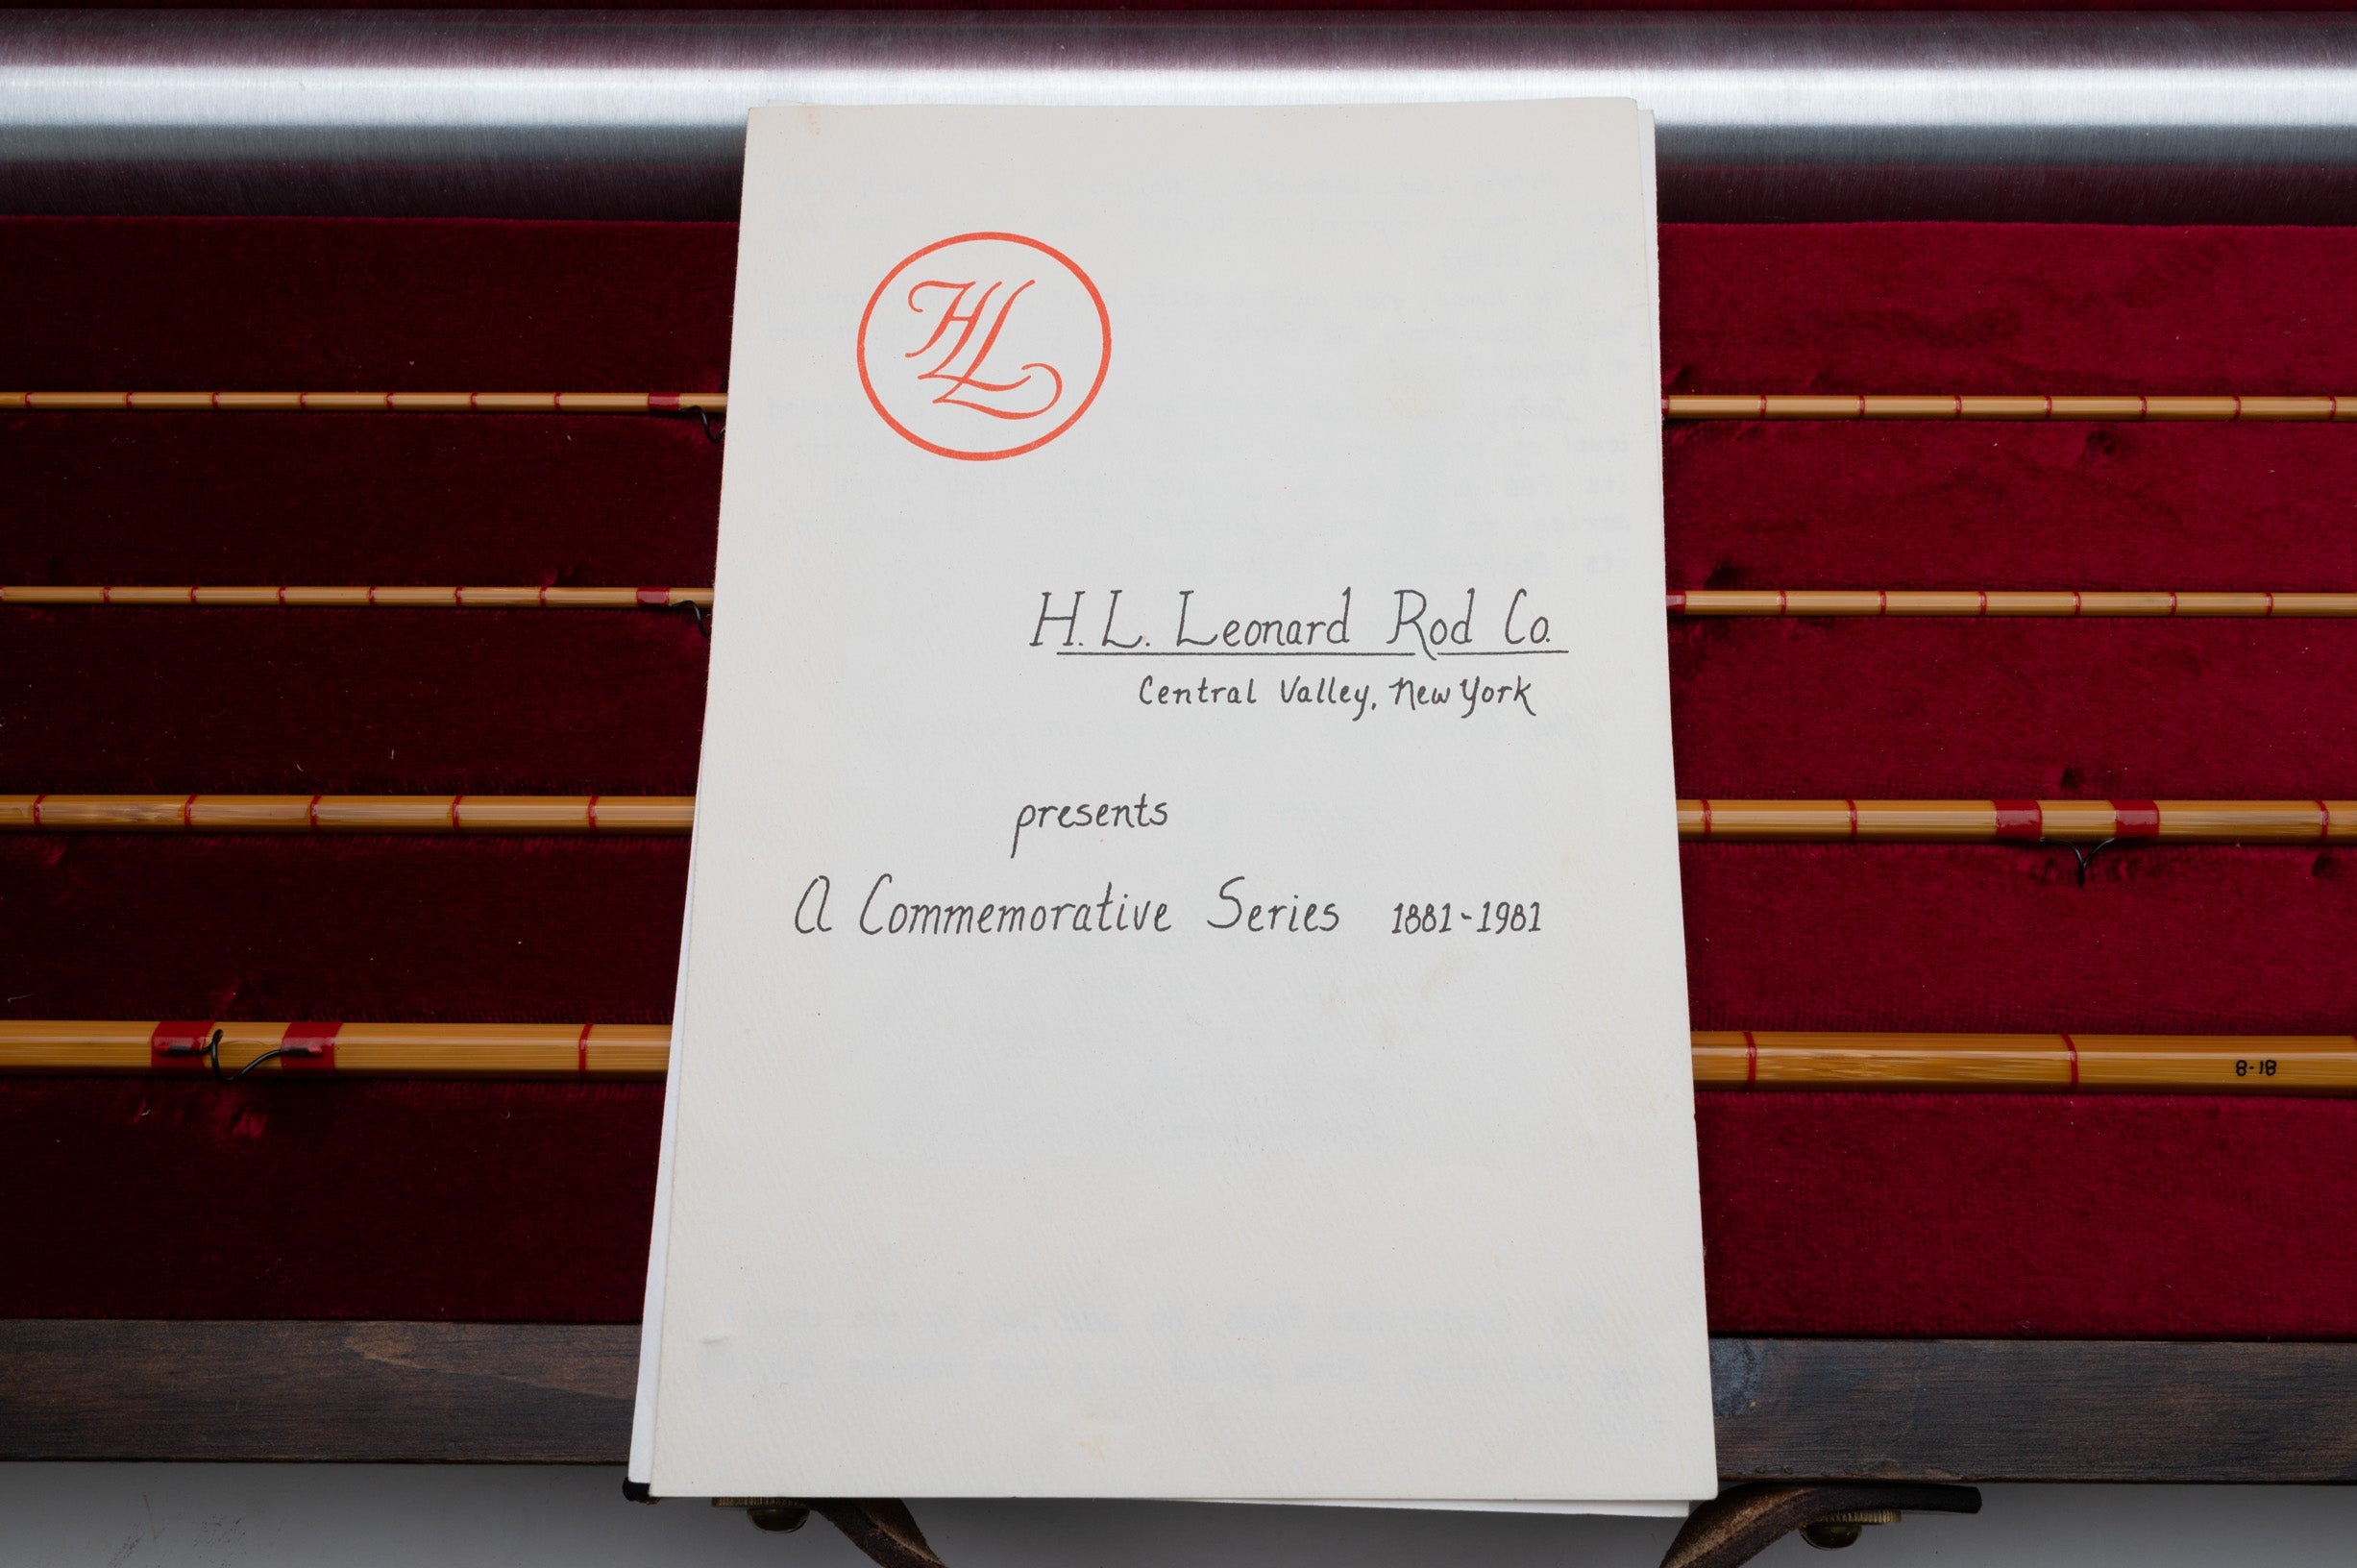 HLL
H. L. Leonard Rod Co.
Central Valley, New York
presents
A Commemorative Series 1881-1981
8-18